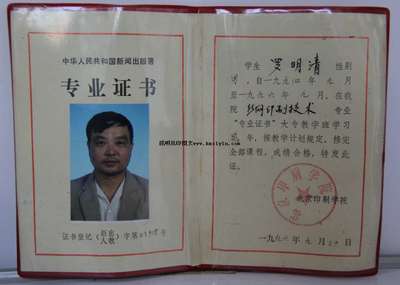 中华人民共和国新闻出版署
专业证书
证书登记（新出人教）字第 号
学生 罗明清 性别
男，自一九九四年九月
至一九九六年 九月，在我
院 丝网印刷技术 专业
“专业证书”大专教学班学习
年，按教学计划规定，修完
全部课程，成绩合格，特发此
证。
北京印刷学院
一九九六年 九月
昆明丝印网 www.kmsiyin.com